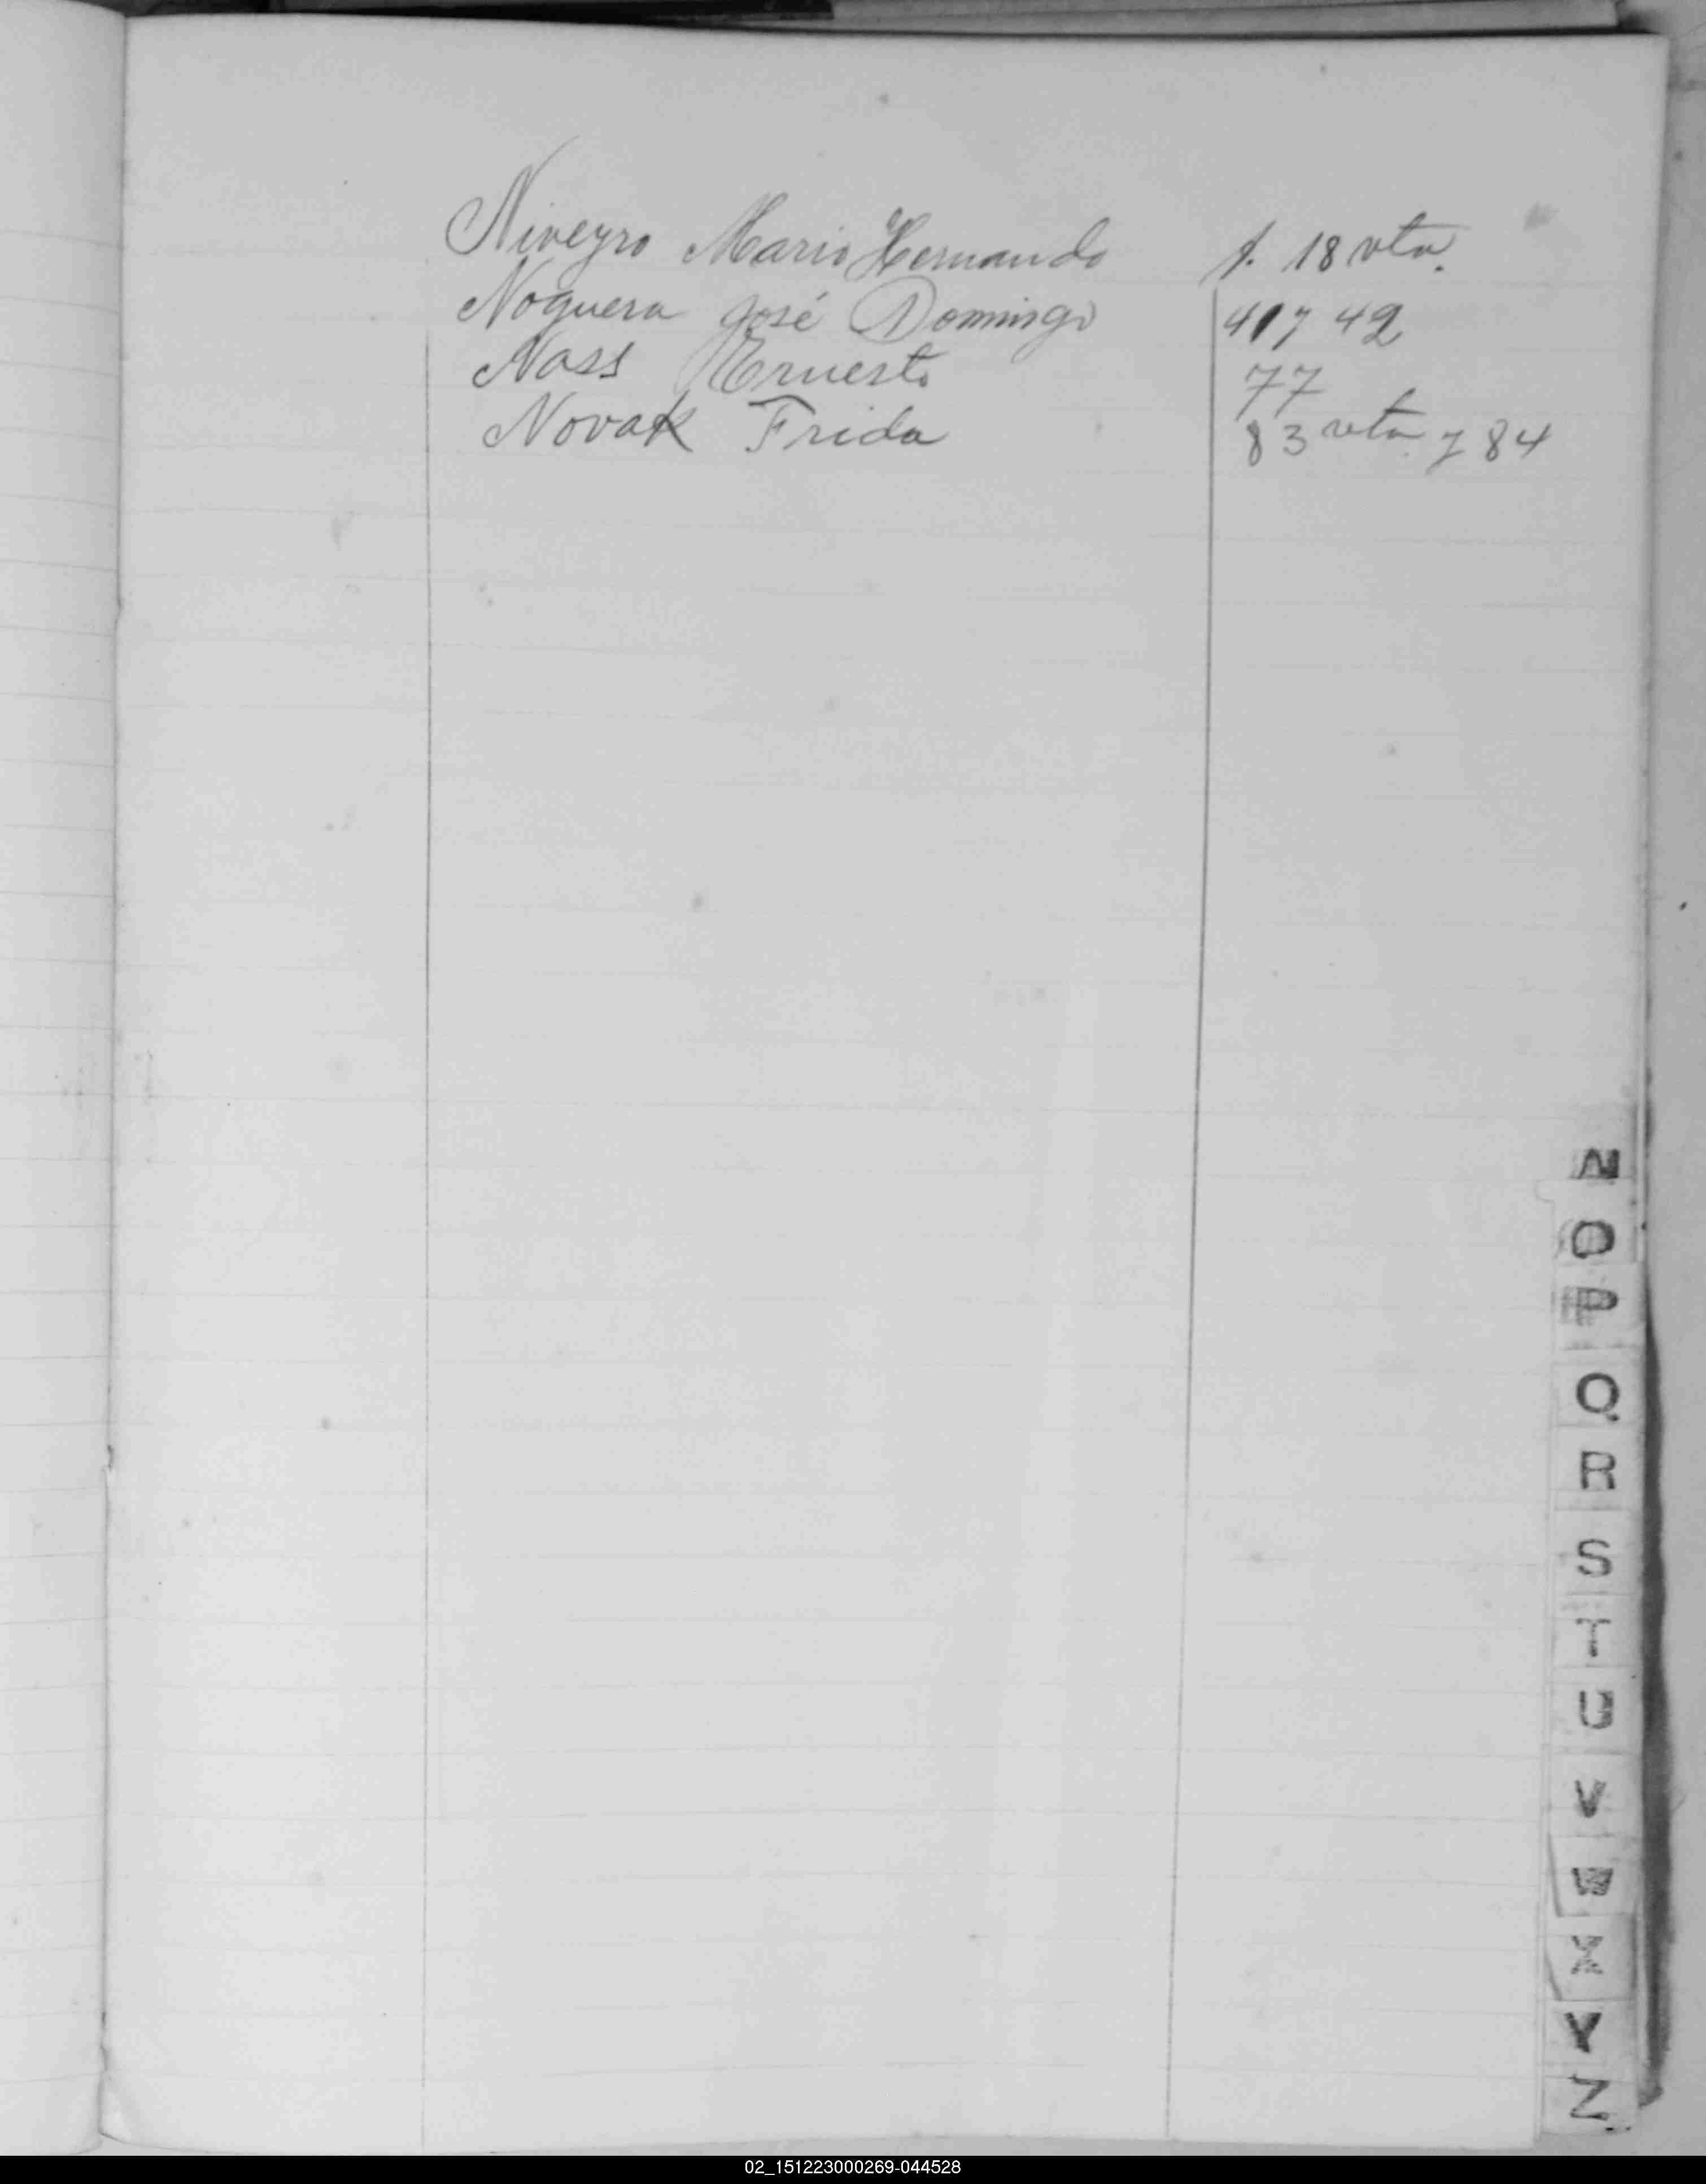 Niveyro Mario Hernando f. 18 vta.
Noguera José Domingo 41 y 42
Nass Ernesto 77
Novak Frida 83 vta. y 84
N
O
P
Q
R
S
T
U
V
W
X
Y
Z
02_151223000269-044528